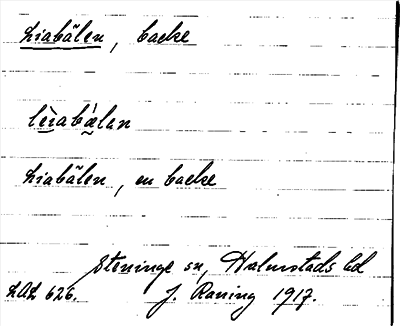 Liabälen, backe
lìrabæ̀lan
Liabälen, en backe
Steninge sn, Halmstads hd
LAL 626. J. Raning 1917.